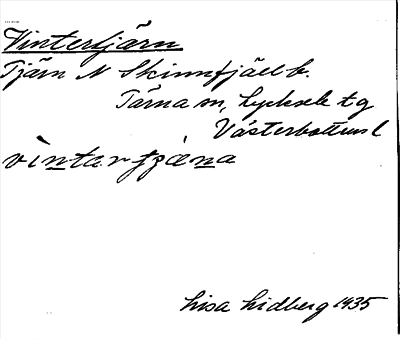 Vintertjärn
Tjärn N Skinnfjäll b.
Tärna sn, Lycksele tg
Västerbottens l
vìntartjæ̀na
Lisa Lidberg 1935